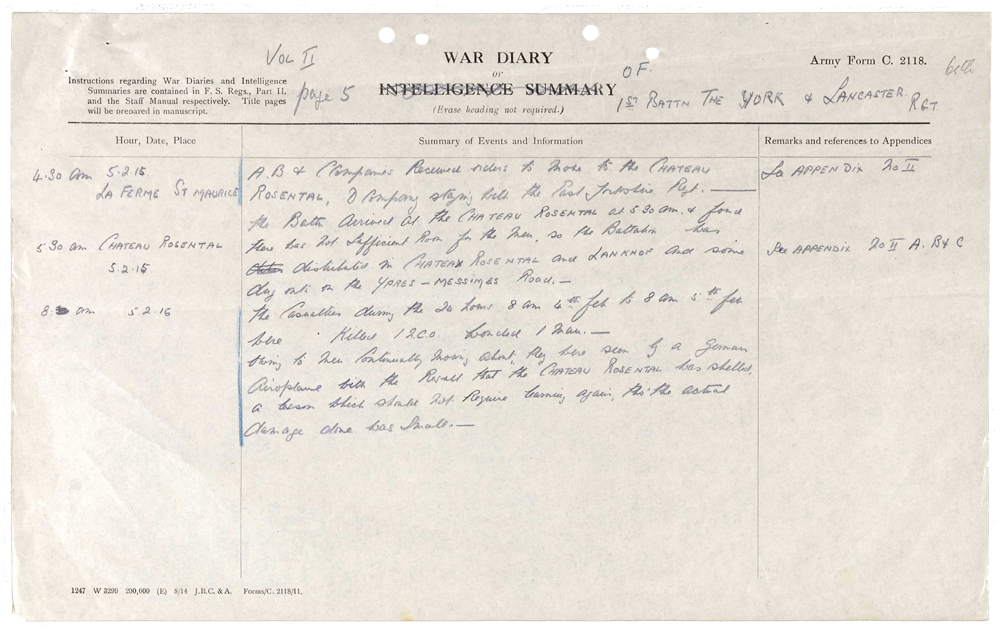 VOL II
WAR DIARY
Army Form C. 2118.
or
OF.
Instructions regarding War Diaries and Intelligence
Summaries are contained in F. S. Regs., Part II.
and the Staff Manual respectively. Title pages
will be prepared in manuscript.
page 5
INTELLIGENCE SUMMARY
(Erase heading not required.)
1ST BATTN THE YORK & LANCASTER. RGT
Hour, Date, Place
Summary of Events and Information
Remarks and references to Appendices
4.30 am 5.2.15
LA FERME ST MAURICE
A. B & C Companies Received orders to move to the CHATEAU
See APPENDIX No II
ROSENTAL, D Company staying with the East Yorkshire Regt. —
the Battn arrived at the CHATEAU ROSENTAL at 5.30 am. & found
5 30 am CHATEAU ROSENTAL
there was not sufficient Room for the men, so the Battalion was
See APPENDIX No II A. B & C
5.2.15
distributed in CHATEAU ROSENTAL and LANKHOF and some
dug outs on the YPRES – MESSINES Road. —
8. am 5.2.15
the Casualties during the 24 hours 8 am 4th feb to 8 am 5th feb
were Killed 1 N.C.O. Wounded 1 Man. —
Owing to men Continually moving about, they were seen by a German
Aeroplane with the Result that the CHATEAU ROSENTAL was shelled,
a lesson which should not Require learning again, tho' the actual
damage done was small. —
1247 W 3299 200,000 (E) 8/14 J.B.C. & A. Forms/C. 2118/11.